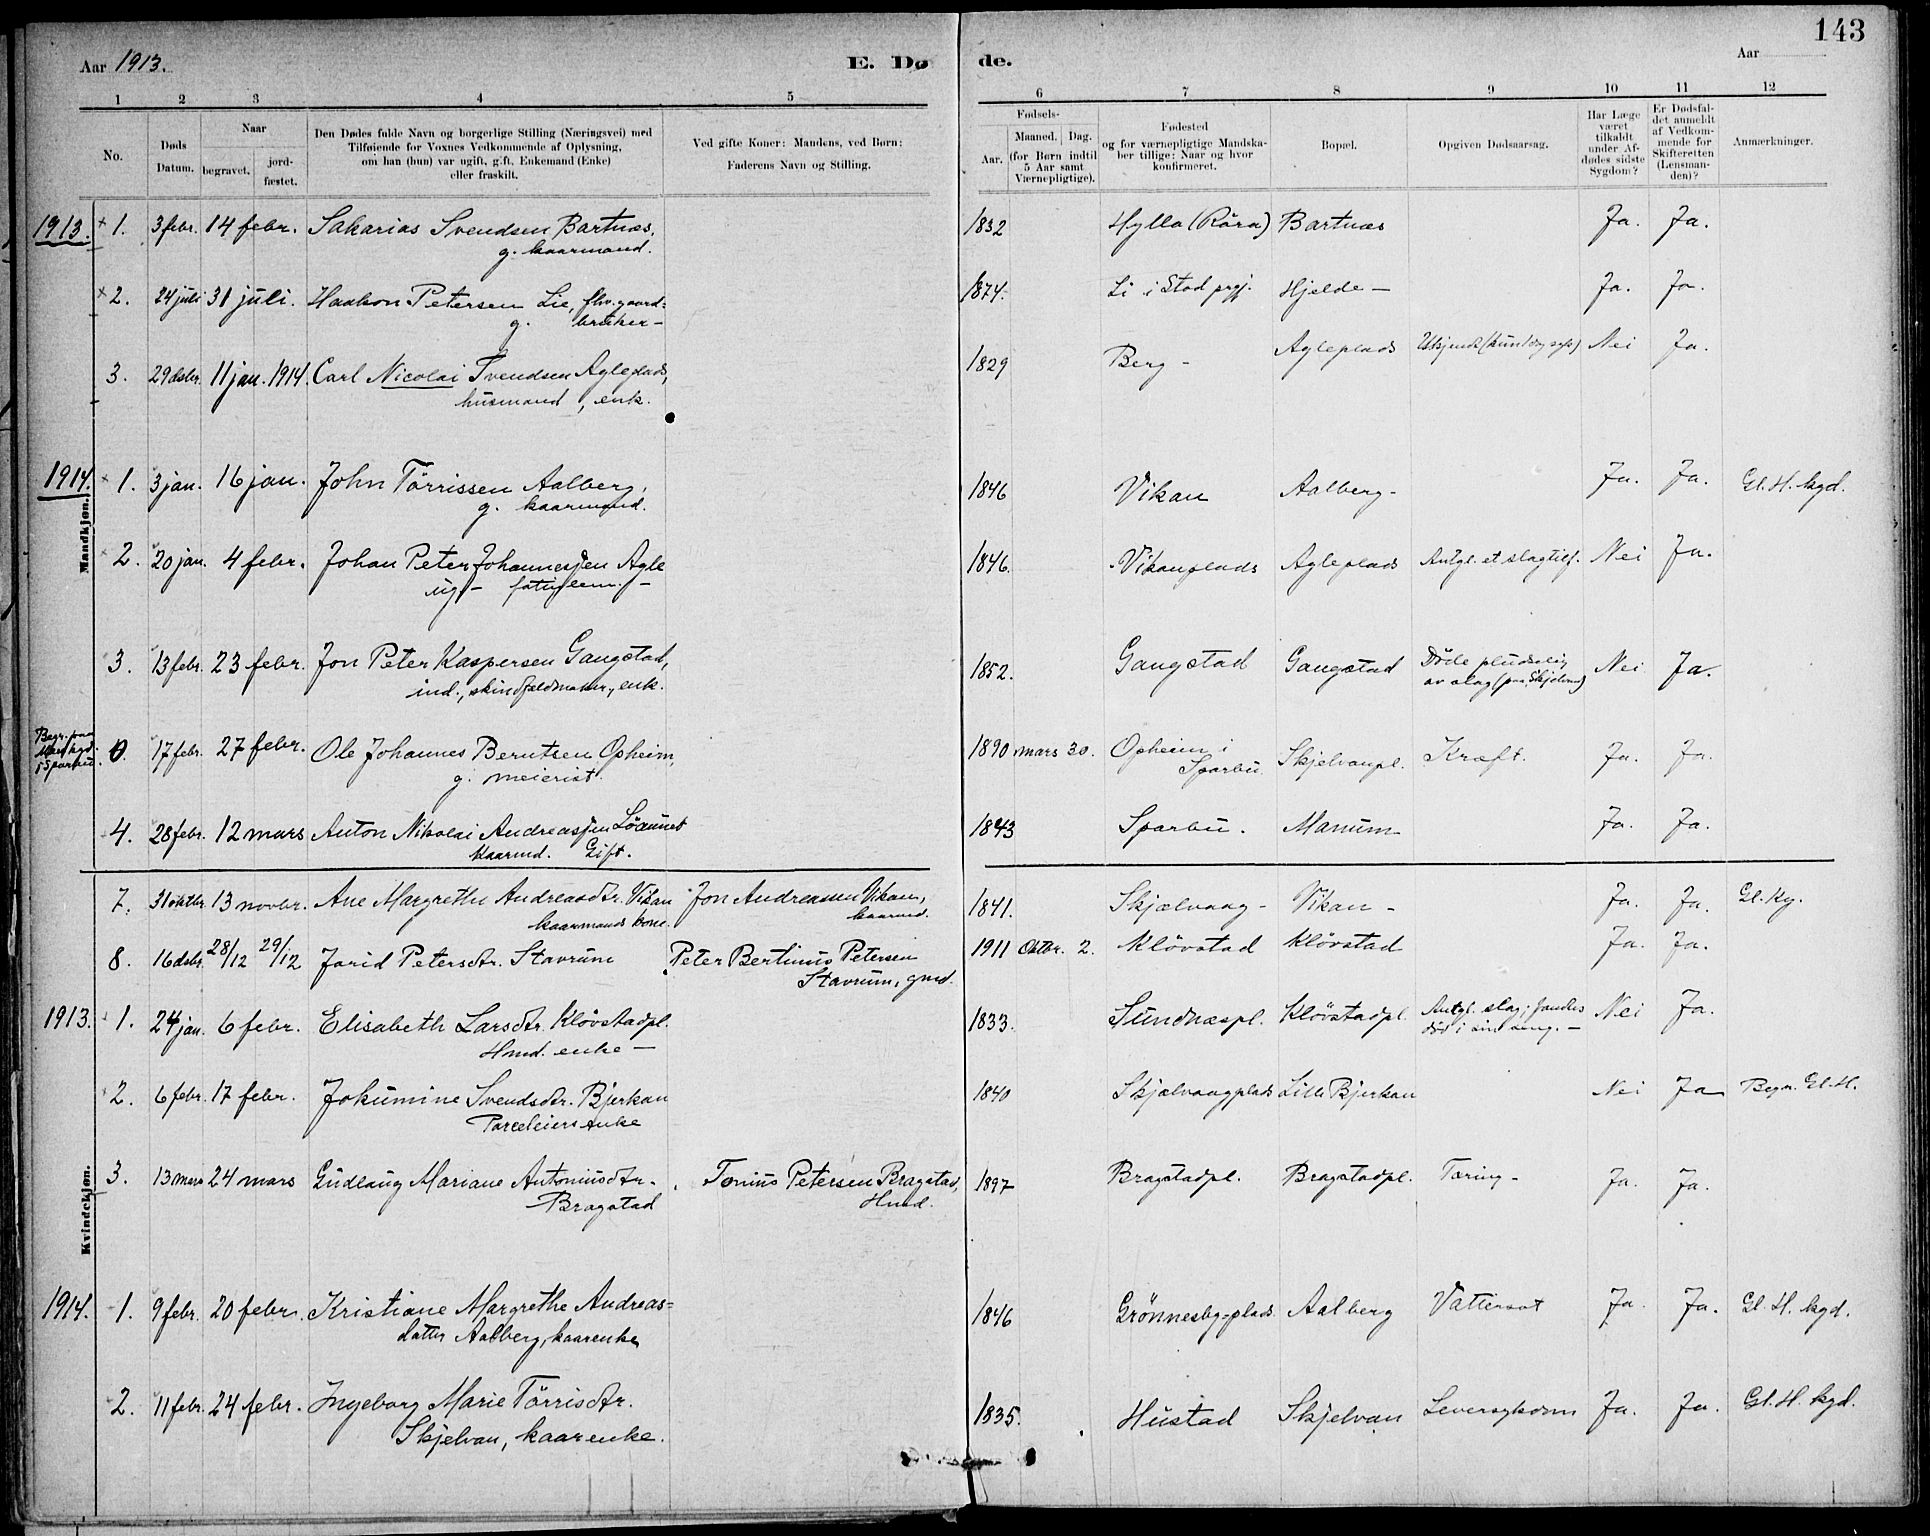 143
Aar 1913.
E. Dø de.
Aar
1 2 3 4 5 6 7 8 9 10 11 12
No.
Døds Datum.
Naar
begravet.
jord-
fæstet.
Den Dødes fulde Navn og borgerlige Stilling (Næringsvei) med
Tilføiende for Voxnes Vedkommende af Oplysning,
om han (hun) var ugift, gift, Enkemand (Enke)
eller fraskilt.
Ved gifte Koner: Mandens, ved Børn:
Faderens Navn og Stilling.
Fødsels-
Aar.
Maaned. Dag.
(for Børn indtil
5 Aar samt
Værnepligtige).
Fødested
og for værnepligtige Mandska-
ber tillige: Naar og hvor
konfirmeret.
Bopæl.
Opgiven Dødsaarsag.
Har Læge
været
tilkaldt
under Af-
dødes sidste
Sygdom?
Er Dødsfal-
det anmeldt
af Vedkom-
mende for
Skifteretten
(Lensman-
den)?
Anmærkninger.
Mandkjøn.
1913. 1. 3 febr. 14 febr. Sakarias Svendsen Bartnæs, 1832 Hylla (Röra) Bartnæs Ja. Ja.
g. kaarmand.
2. 24 juli 31 juli. Haakon Petersen Lie, fhv. gaard- 1874. Li i Stod prgj. Hjelde - Ja. Ja.
g. bruker -
3. 29 dsbr. 11 jan. 1914. Carl Nicolai Svendsen Agleplads, 1829 Berg - Agleplads Nei Ja.
husmand, enk.
1914. 1. 3 jan. 16 jan. John Törrissen Aalberg, 1846 Vikan Aalberg - Ja. Ja. Gl. H. kgd.
g. kaarmand.
2. 20 jan. 4 febr. Johan Peter Johannessen Agle 1846. Vikanplads Agleplads Antgl. et slagtilf. Nei Ja.
ug -
3. 13 febr. 23 febr. Jon Peter Kaspersen Gangstad, 1852. Gangstad Gangstad Döde pludselig Nei Ja.
ind., skindfældmaker, enk. av slag (paa Skjelvan)
Begr. paa
Mære kgd.
i Sparbu.
0. 17 febr. 27 febr. Ole Johannes Berntsen Opheim, 1890 mars 30. Opheim i Skjelvanpl. Kræft. Ja. Ja.
g. meierist. Sparbu.
4. 28 febr. 12 mars Anton Nikolai Andreassen Löaunet 1843 Sparbu. Manum Ja. Ja.
Kaarmd. Gift.
Kvindekjøn.
7. 31 oktbr. 13 novbr. Ane Margrethe Andreasdtr. Vikan Jon Andreassen Vikan, 1841. Skjælvaag - Vikan - Ja. Ja. Gl. Kg.
kaarmands kone. kaarmd.
8. 16 dsbr. 28/12 29/12 Jorid Petersdtr. Stavrum Peter Bertinus Petersen 1911 Oktbr. 2. Klövstad Klövstad Ja. Ja.
Stavrum, gmd.
1913. 1. 24 jan. 6 febr. Elisabeth Larsdtr. Klövstadpl. 1833. Sundnæspl. Klövstadpl. Antgl. slag; fandes Nei Ja.
Hmd. enke - död i sin seng. -
2. 6 febr. 17 febr. Jokumine Svendsdtr. Bjerkan 1840 Skjælvaagplads Lille Bjerkan Nei Ja Begr. Gl. H.
Parceleiers enke
3. 13 mars 24 mars Gudlaug Mariane Antoniusdtr. Tonius Petersen Bragstad, 1897 Bragstadpl. Bragstadpl. Tæring - Ja. Ja.
Bragstad Hmd.
1914. 1. 9 febr. 20 febr. Kristiane Margrethe Andreas- 1846 Grönnesby-plads Aalberg Vattersot Ja. Ja. Gl. H. kgd.
datter Aalberg, kaarenke
2. 11 febr. 24 febr. Ingeborg Marie Törrisdtr. 1835. Hustad Skjelvan Leversykdom Ja. Ja. Gl. H. kgd.
Skjelvan, kaarenke.